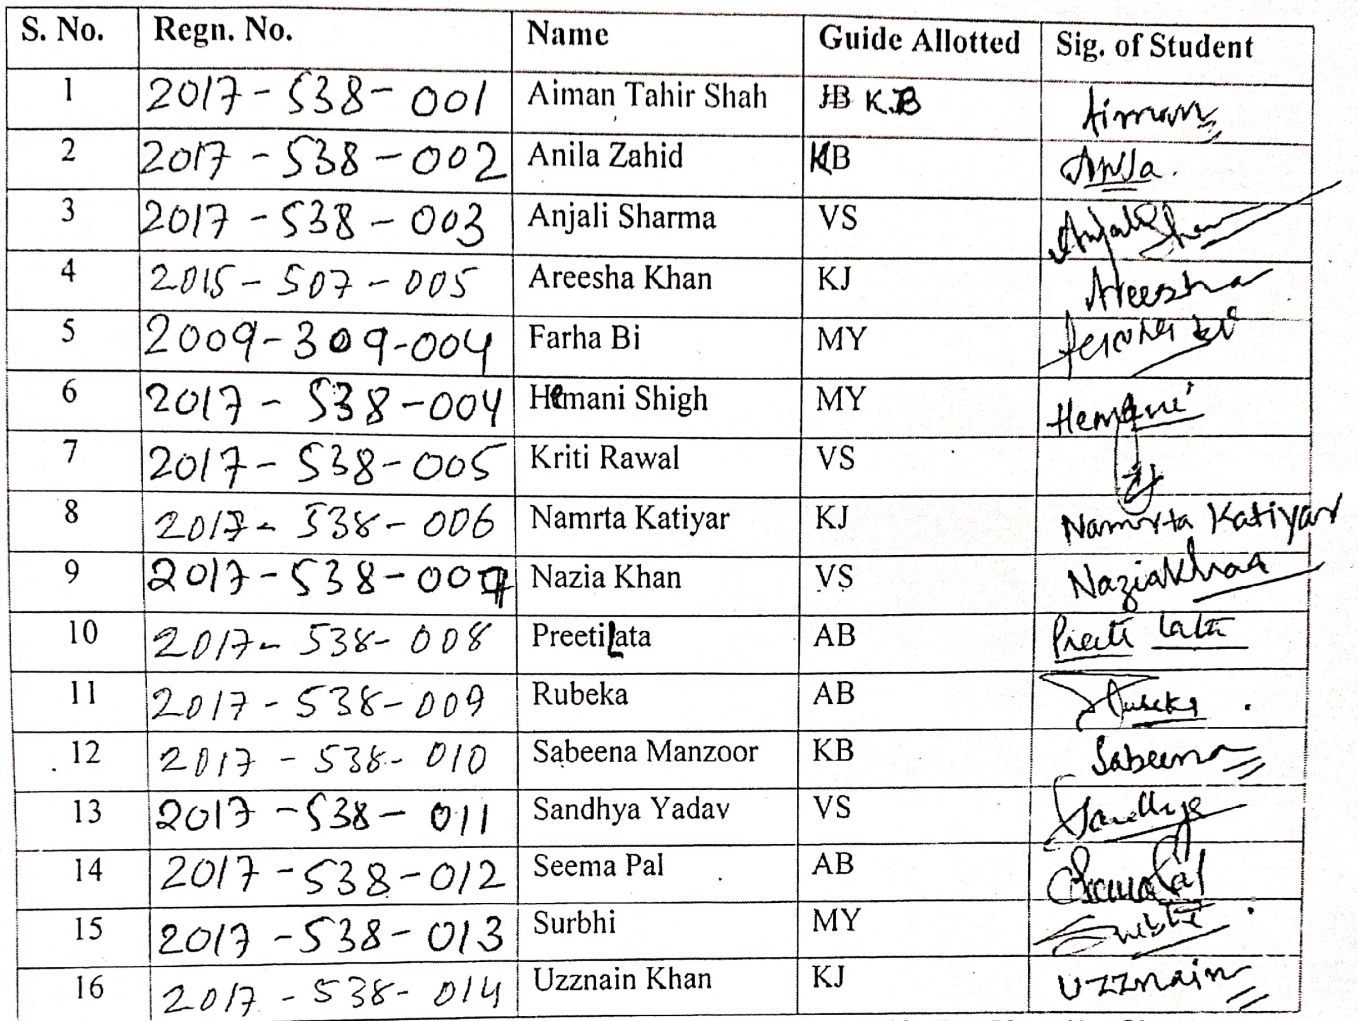 S. No. Regn. No. Name Guide Allotted Sig. of Student
1 2017-538-001 Aiman Tahir Shah JB K.B Aiman
2 2017-538-002 Anila Zahid KB Anila.
3 2017-538-003 Anjali Sharma VS Anjali Sharma
4 2015-507-005 Areesha Khan KJ Areesha
5 2009-309-004 Farha Bi MY Farha Bi
6 2017-538-004 Hemani Shigh MY Hemani
7 2017-538-005 Kriti Rawal VS
8 2017-538-006 Namrta Katiyar KJ Namrta Katiyar
9 2017-538-007 Nazia Khan VS Nazia Khan
10 2017-538-008 PreetiLata AB Preeti Lata
11 2017-538-009 Rubeka AB Rubeka
12 2017-538-010 Sabeena Manzoor KB Sabeena
13 2017-538-011 Sandhya Yadav VS Sandhya
14 2017-538-012 Seema Pal AB Seema Pal
15 2017-538-013 Surbhi MY Surbhi
16 2017-538-014 Uzznain Khan KJ Uzznain